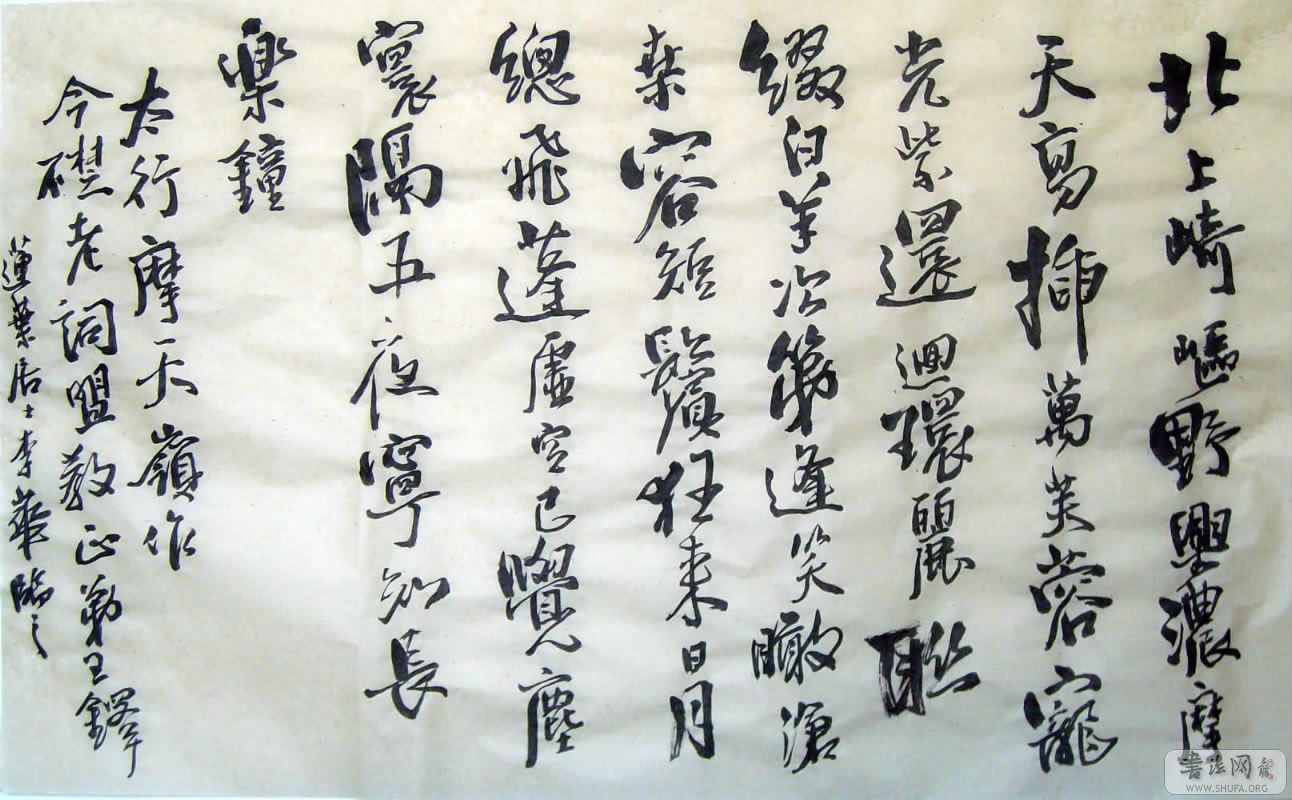 北上崎嶇野興濃摩
天易插萬芙蓉寵
光紫還迴環麗聯
綴白羊次第逢笑瞰滄
桑容短鬢狂來日月
總飛蓬虛空已覺塵
寰隔五夜寧知長
樂鐘
太行摩天嶺作
今礎老詞盟教正弟王鐸
蓮葉居士李華臨之
書法网
WWW.SHUFA.ORG